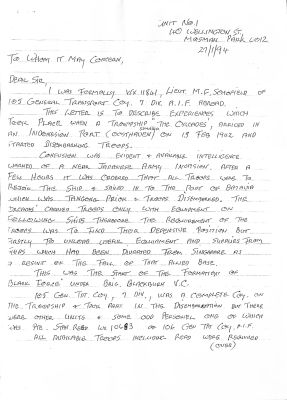 UNIT No.1
40 WELLINGTON ST.
MOSMAN PARK 6012
27/1/94
TO WHOM IT MAY CONCERN,
DEAR SIR,
I WAS FORMALLY WX 11861, LIEUT M.F. SCHOFIELD OF
105 GENERAL TRANSPORT COY. 7 DIV. A.I.F. ABROAD.
THIS LETTER IS TO DESCRIBE EXPERIENCES WHICH
TOOK PLACE WHEN A TROOPSHIP "THE ORCADES", ARRIVED IN
SUMATRA
AN INDONESIAN PORT (OOSTHAVEN) ON 15 FEB 1942 AND
STARTED DISEMBARKING TROOPS.
CONFUSION WAS EVIDENT & AVAILABLE INTELLIGENCE
WARNED OF A NEAR JAPANESE ARMY INVASION. AFTER A
FEW HOURS IT WAS ORDERED THAT ALL TROOPS WERE TO
REJOIN THE SHIP & SAILED IN TO THE PORT OF BATAVIA
WHICH WAS TANJONG PRIOK & TROOPS DISEMBARKED. THE
"ORCADES" CARRIED TROOPS ONLY WITH EQUIPMENT ON
FOLLOWING SHIPS THEREFORE THE REQUIREMENT OF THE
TROOPS WAS TO FIND THEIR DEFENSIVE POSITION BUT
FIRSTLY TO UNLOAD WHARF EQUIPMENT AND SUPPLIES FROM
SHIPS WHICH HAD BEEN DIVERTED FROM SINGAPORE AS
A RESULT OF THE FALL OF THAT ALLIED BASE.
THIS WAS THE START OF THE FORMATION OF
"BLACK FORCE" UNDER BRIG. BLACKBURN V.C.
105 GEN TPT COY, 7 DIV., WAS A COMPLETE COY. ON
THE TROOPSHIP & TOOK PART IN THE DISEMBARKATION BUT THERE
WERE OTHER UNITS & SOME ODD PERSONEL ONE OF WHICH
WAS PTE. STAN READ WX 10683 OF 106 GEN TPT COY, A.I.F.
ALL AVAILABLE TROOPS INCLUDING READ WERE REQUIRED
(OVER)